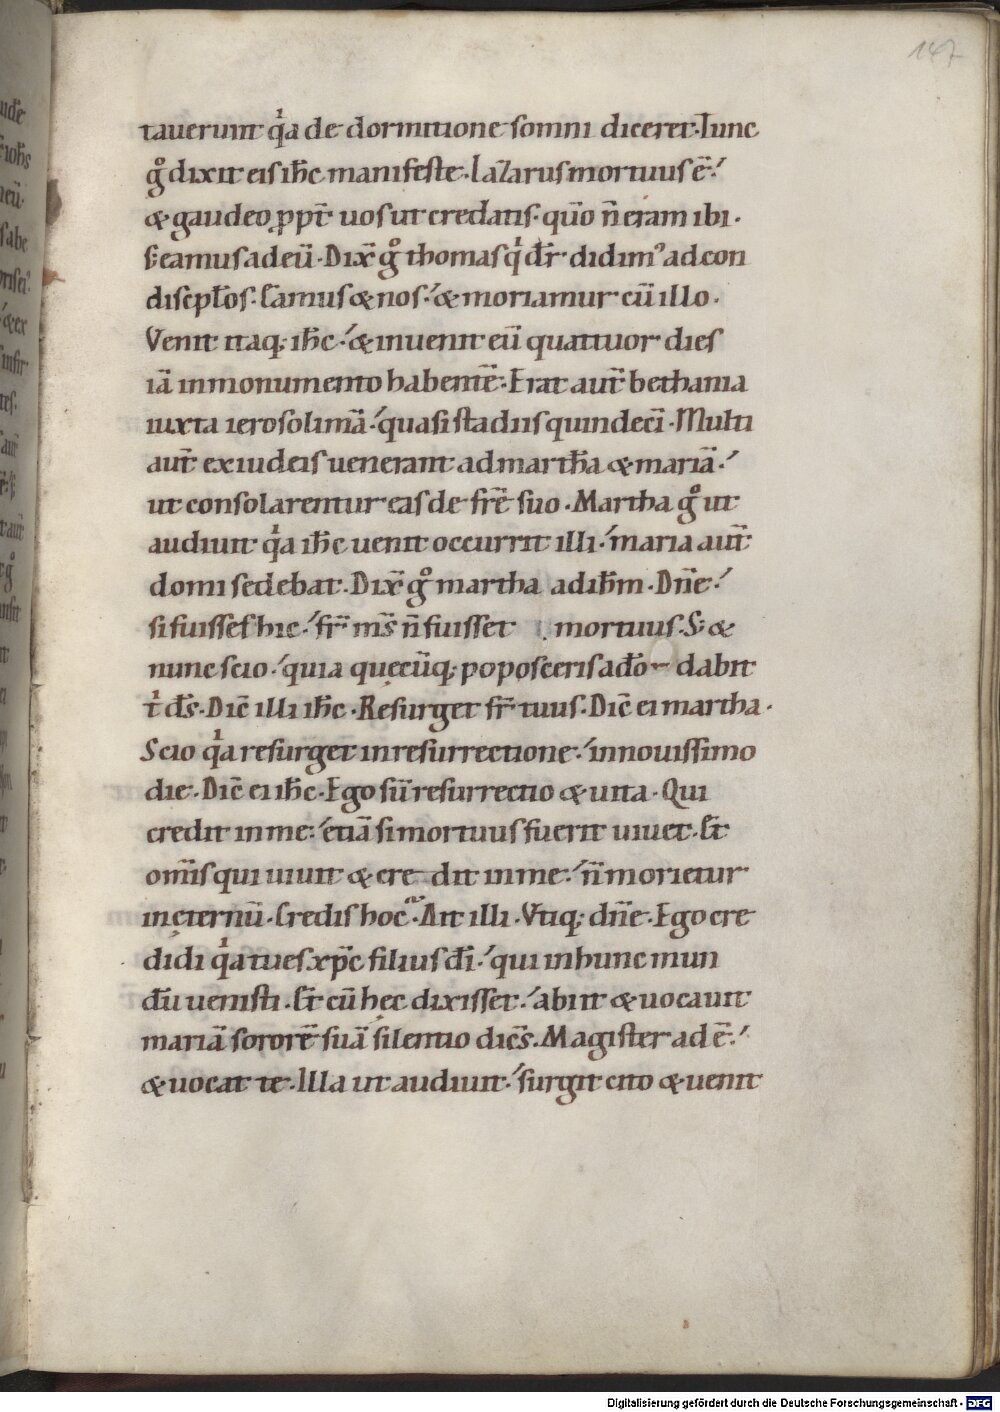 147
tauerunt qͥa de dormitione somni diceret. Tunc
gͦ dixit eis ih̅c manifeste. Lazarus mortuus e̅.
& gaudeo ꝓpt̅ uos ut credatis. quo̅ n̅ eram ibi.
S; eamus ad eu̅. Dix̅ gͦ thomas qͥ dr̅ didim᾽ ad con
discipl̅os. Eamus & nos. & moriamur cu̅ illo.
Venit itaq; ih̅c. & inuenit eu̅ quattuor dies
ia̅ in monumento habente̅. Erat aut̅ bethania
iuxta ierosolima̅. quasi stadiis quindeci̅. Multi
aut̅ ex iudeis uenerant ad martha̅ & maria̅.
ut consolarentur eas de fr̅e suo. Martha gͦ ut
audiuit qͥa ih̅c uenit occurrit illi. maria aut̅
domi sedebat. Dix̅ gͦ martha ad ih̅m. Dn̅e.
si fuisses hic. fr̅ ms̅ n̅ fuisset mortuus. S; &
nunc scio. quia quęcu̅q; poposceris a do̅ dabit
tͥ ds̅. Dic̅ illi ih̅c. Resurget fr̅ tuus. Dic̅ ei martha.
Scio qͥa resurget in resurrectione. in nouissimo
die. Dic̅ ei ih̅c. Ego su̅ resurrectio & uita. Qui
credit in me. etia̅ si mortuus fuerit uiuet. Et
om̅is qui uiuit & credit in me. n̅ morietur
in ęternu̅. Credis hoc. Ait illi. Vtiq; dn̅e. Ego cre
didi qͥa tu es xp̅c filius di̅. qui in hunc mun
du̅ uenisti. Et cu̅ hęc dixisset. abiit & uocauit
maria̅ sorore̅ sua̅ silentio dice̅s. Magister ad e̅.
& uocat te. Illa ut audiuit. surgit cito & uenit
Digitalisierung gefördert durch die Deutsche Forschungsgemeinschaft - DFG